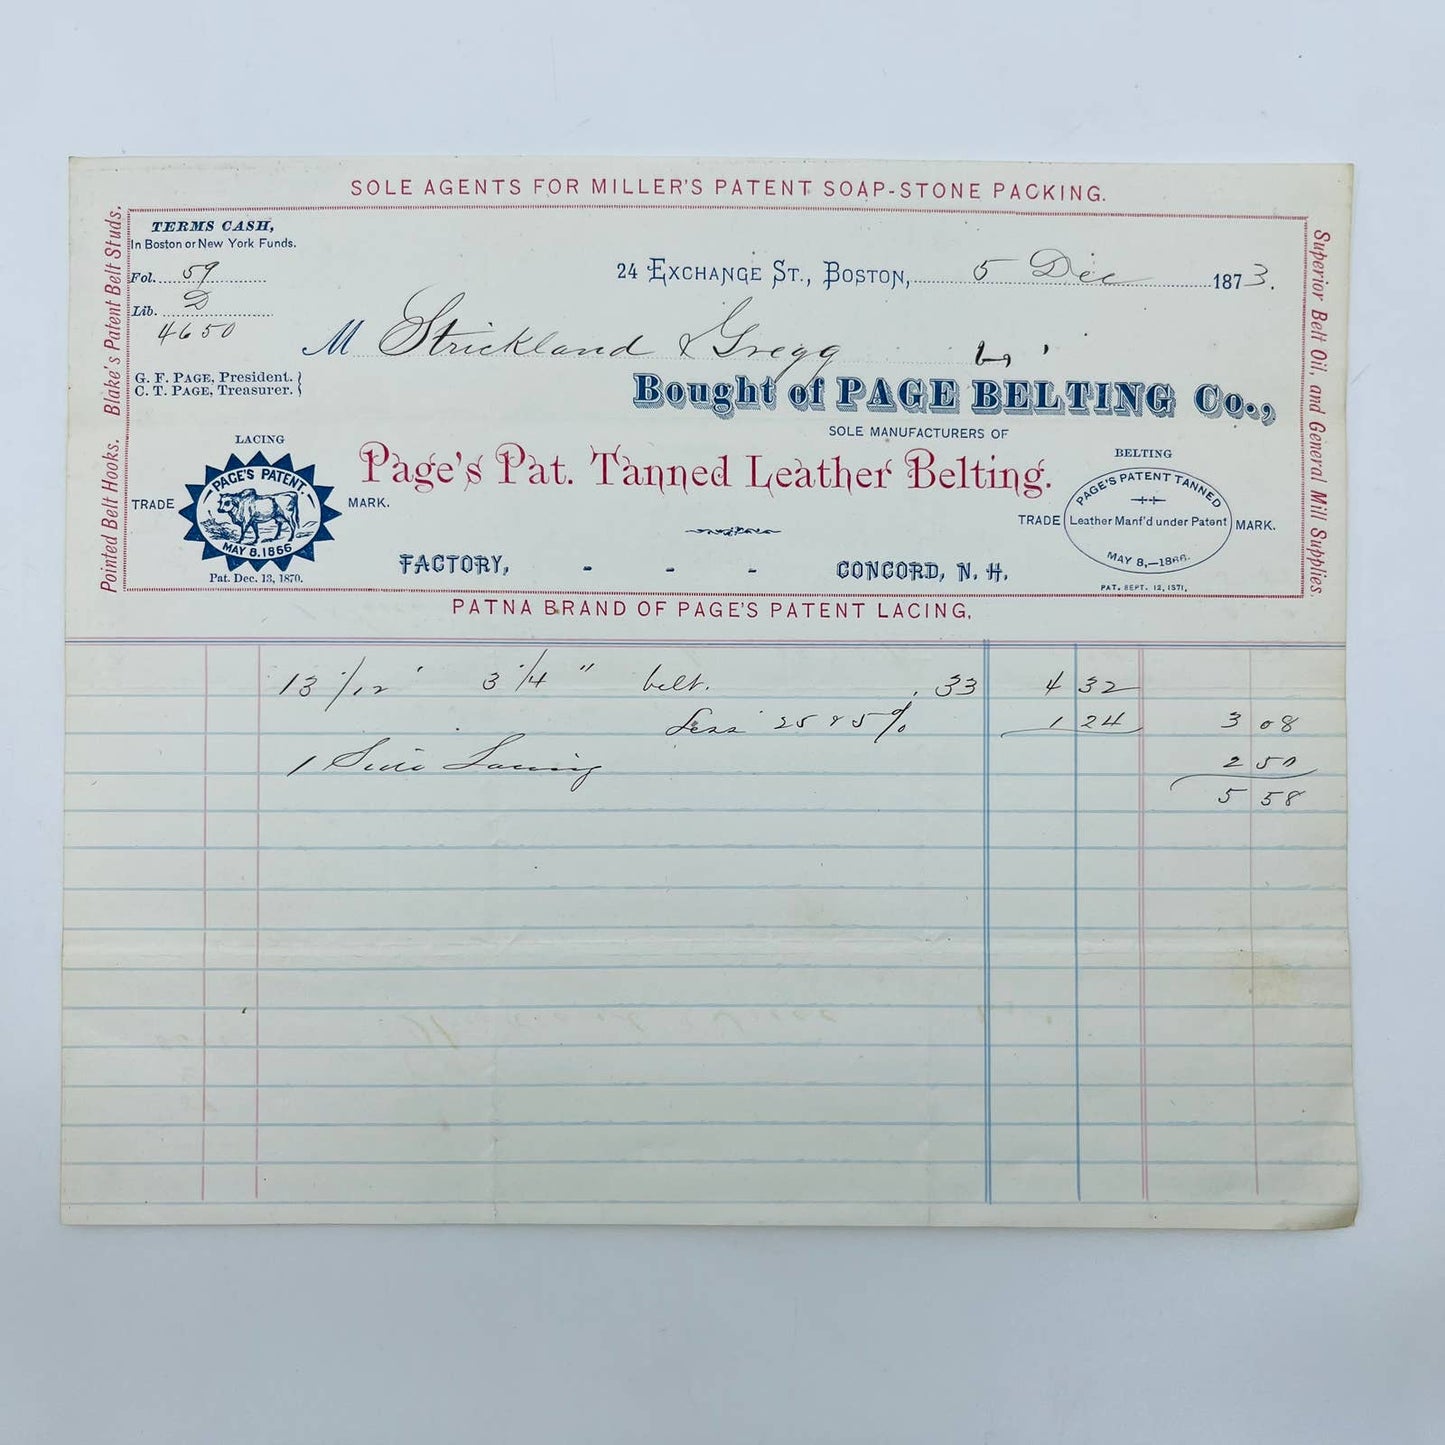 SOLE AGENTS FOR MILLER'S PATENT SOAP-STONE PACKING.
Pointed Belt Hooks. Blake's Patent Belt Studs.
Superior Belt Oil, and General Mill Supplies.
TERMS CASH,
In Boston or New York Funds.
Fol. 59
Lib. D
4650
24 EXCHANGE ST., BOSTON, 5 Dec 1873.
M Strickland & Gregg
G. F. PAGE, President.
C. T. PAGE, Treasurer.
Bought of PAGE BELTING Co.,
SOLE MANUFACTURERS OF
Page's Pat. Tanned Leather Belting.
LACING
TRADE MARK.
PAGE'S PATENT.
MAY 8. 1866
Pat. Dec. 13, 1870.
BELTING
PAGE'S PATENT TANNED
TRADE Leather Manf'd under Patent MARK.
MAY 8,—1866.
PAT. SEPT. 12, 1871,
FACTORY, - - - CONCORD, N. H.
PATNA BRAND OF PAGE'S PATENT LACING,
13 1/12 ' 3 1/4 " belt. .33 4 32
Less 25 & 5% 1 24 3 08
1 Side Lacing 2 50
5 58